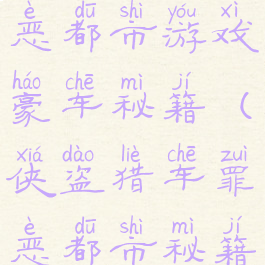 è dū shì yóu xì
恶都市游戏
háo chē mì jí
豪车秘籍(
xiá dào liè chē zuì
侠盗猎车罪
è dū shì mì jí
恶都市秘籍